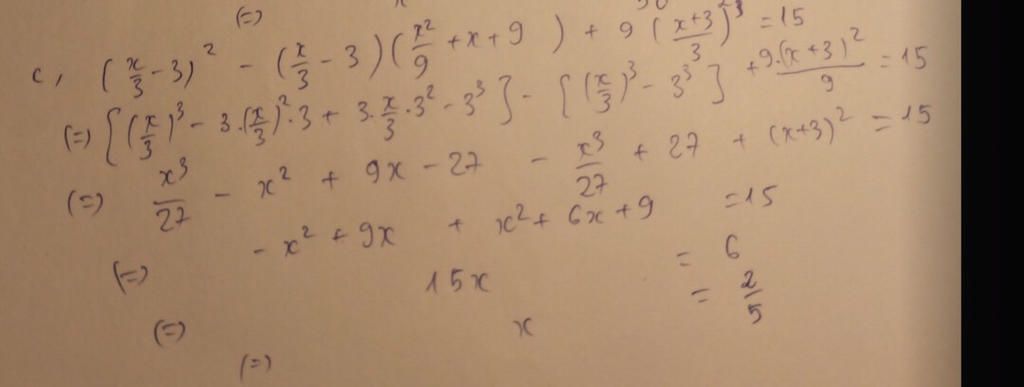 (=)
c, (x/3 - 3)² - (x/3 - 3)(x²/9 + x + 9) + 9((x+3)/3)² = 15
(=) [(x/3)³ - 3.(x/3)².3 + 3.x/3.3² - 3³] - [(x/3)³ - 3³] + 9.(x+3)²/9 = 15
(=) x³/27 - x² + 9x - 27 - x³/27 + 27 + (x+3)² = 15
(=) - x² + 9x + x² + 6x + 9 = 15
(=) 15x = 6
(=) x = 2/5